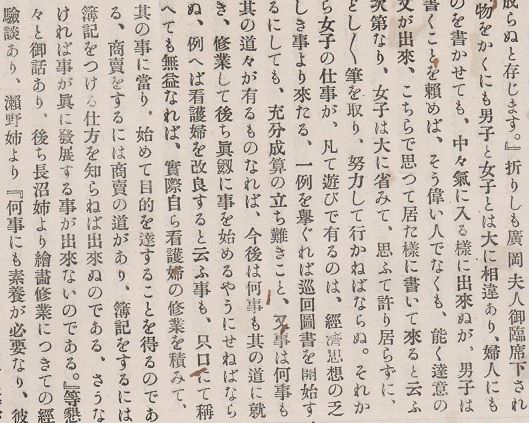 成らぬと存じます。』折りしも廣岡夫人御臨席下され
物をかくにも男子と女子とは大に相違あり、婦人にも
のを書かせても、中々氣に入る樣に出來ぬが、男子は
書くことを賴めば、そう偉い人でなくも、能く達意の
文が出來、こちらで思つて居た樣に書いて來ると云ふ
次第なり、女子は大に省みて、思ふて許り居らずに、
どし〱筆を取り、努力して行かねばならぬ。それか
ら女子の仕事が、凡て遊びで有るのは、經濟思想の乏
しき事より來たる、一例を擧ぐれば巡回圖書を開始す
るにしても、充分成算の立ち難きこと、又事は何事も
其の道々が有るものなれば、今後は何事も其の道に就
き、修業して後ち眞劔に事を始めるやうにせねばなら
ぬ、例へば看護婦を改良すると云ふ事も、只口にて稱
へても無益なれば、實際自ら看護婦の修業を積みて、
其の事に當り、始めて目的を達することを得るのであ
る、商賣をするには商賣の道があり、簿記をするには
簿記をつける仕方を知らねば出來ぬのである、さうな
ければ事が眞に發展する事が出來ないのである。』等懇
々と御話あり、後ち長沼姉より繪畫修業につきての經
驗談あり、瀨野姉より『何事にも素養が必要なり、彼